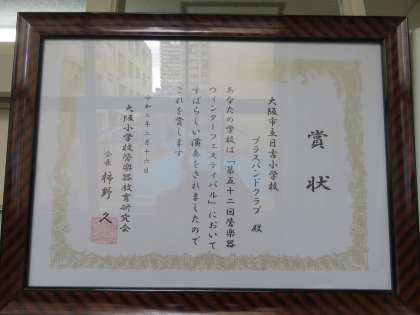 賞状
大阪市立日吉小学校
ブラスバンドクラブ 殿
あなたの学校は「第五十二回管楽器
ウィンターフェスティバル」において
すばらしい演奏をされましたので
これを賞します
令和二年二月十六日
大阪小学校管楽器教育研究会
会長 柿野 久